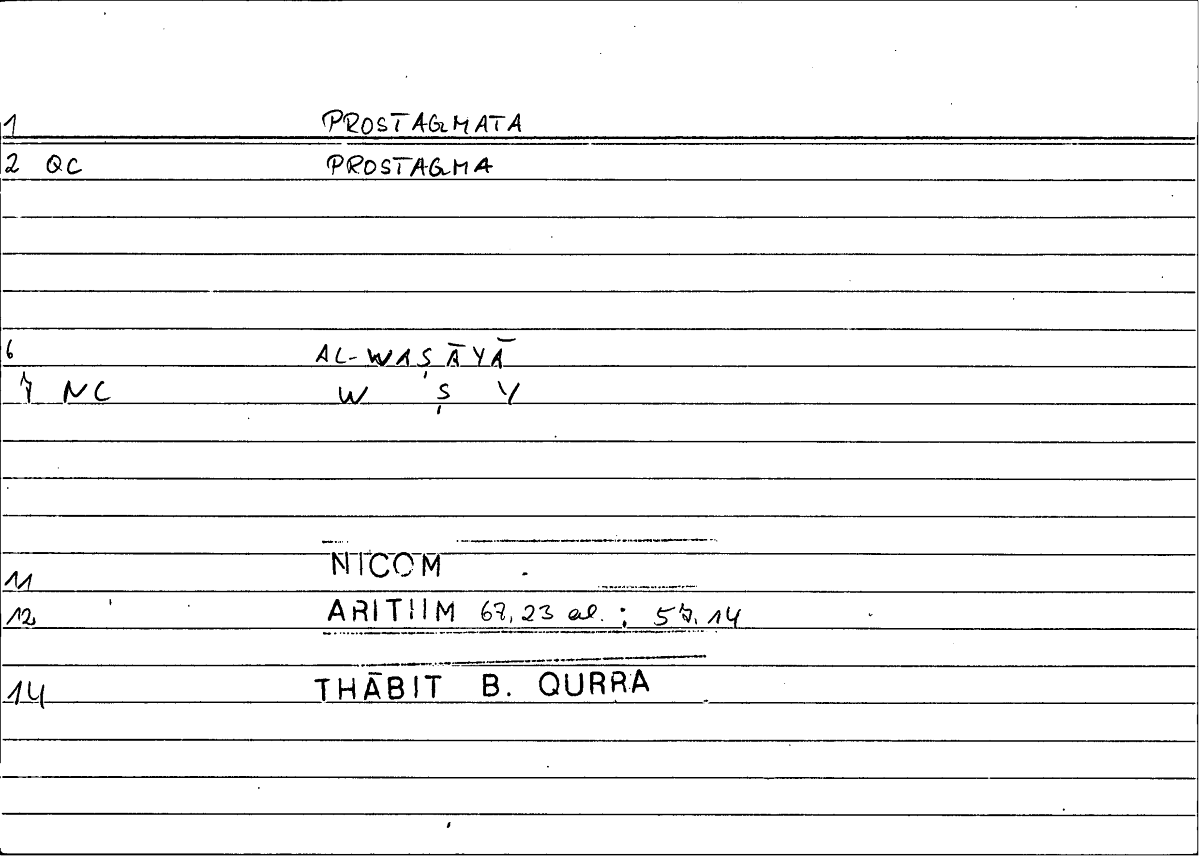 1 PROSTAGMATA
2 QC PROSTAGMA
6 AL-WAṢĀYĀ
7 NC W Ṣ Y
11 NICOM
12 ARITHM 67,23 al. ; 57,14
14 THĀBIT B. QURRA